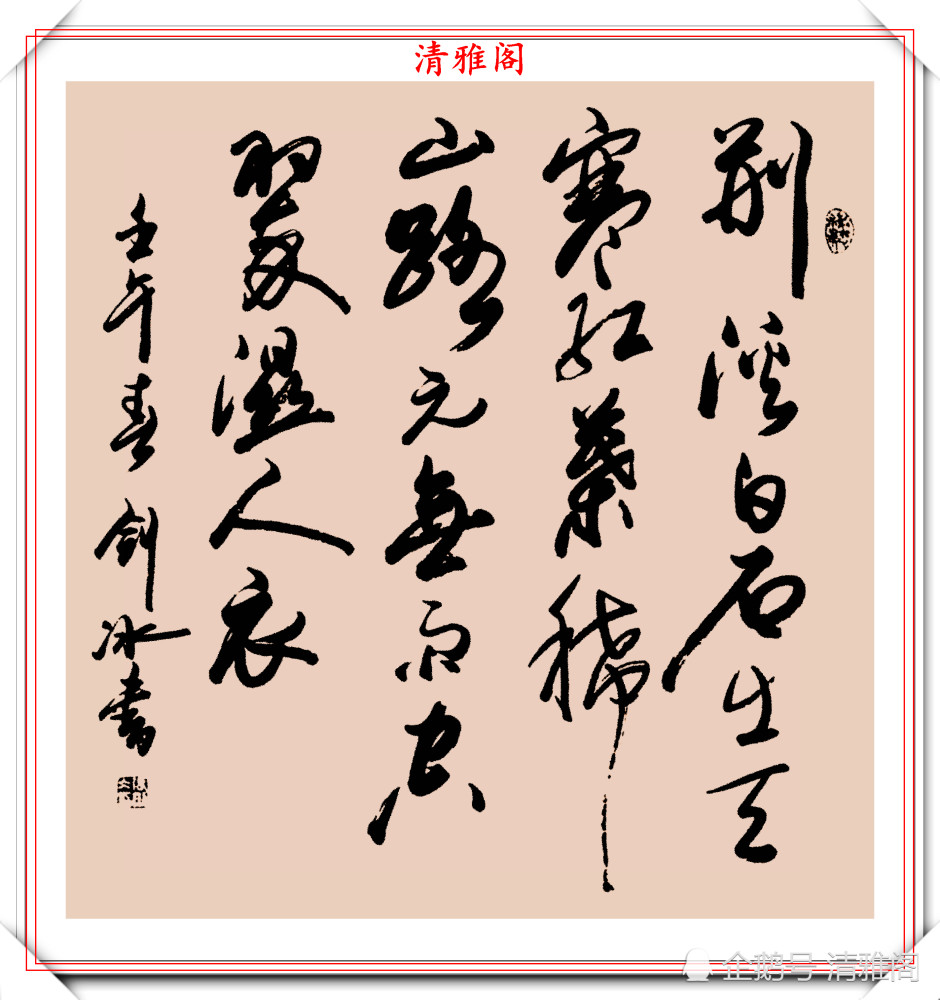 清雅阁
荆溪白石出天
寒红葉稀
山路元無雨空
翠濕人衣
壬午春 剑冰書
企鹅号 清雅阁